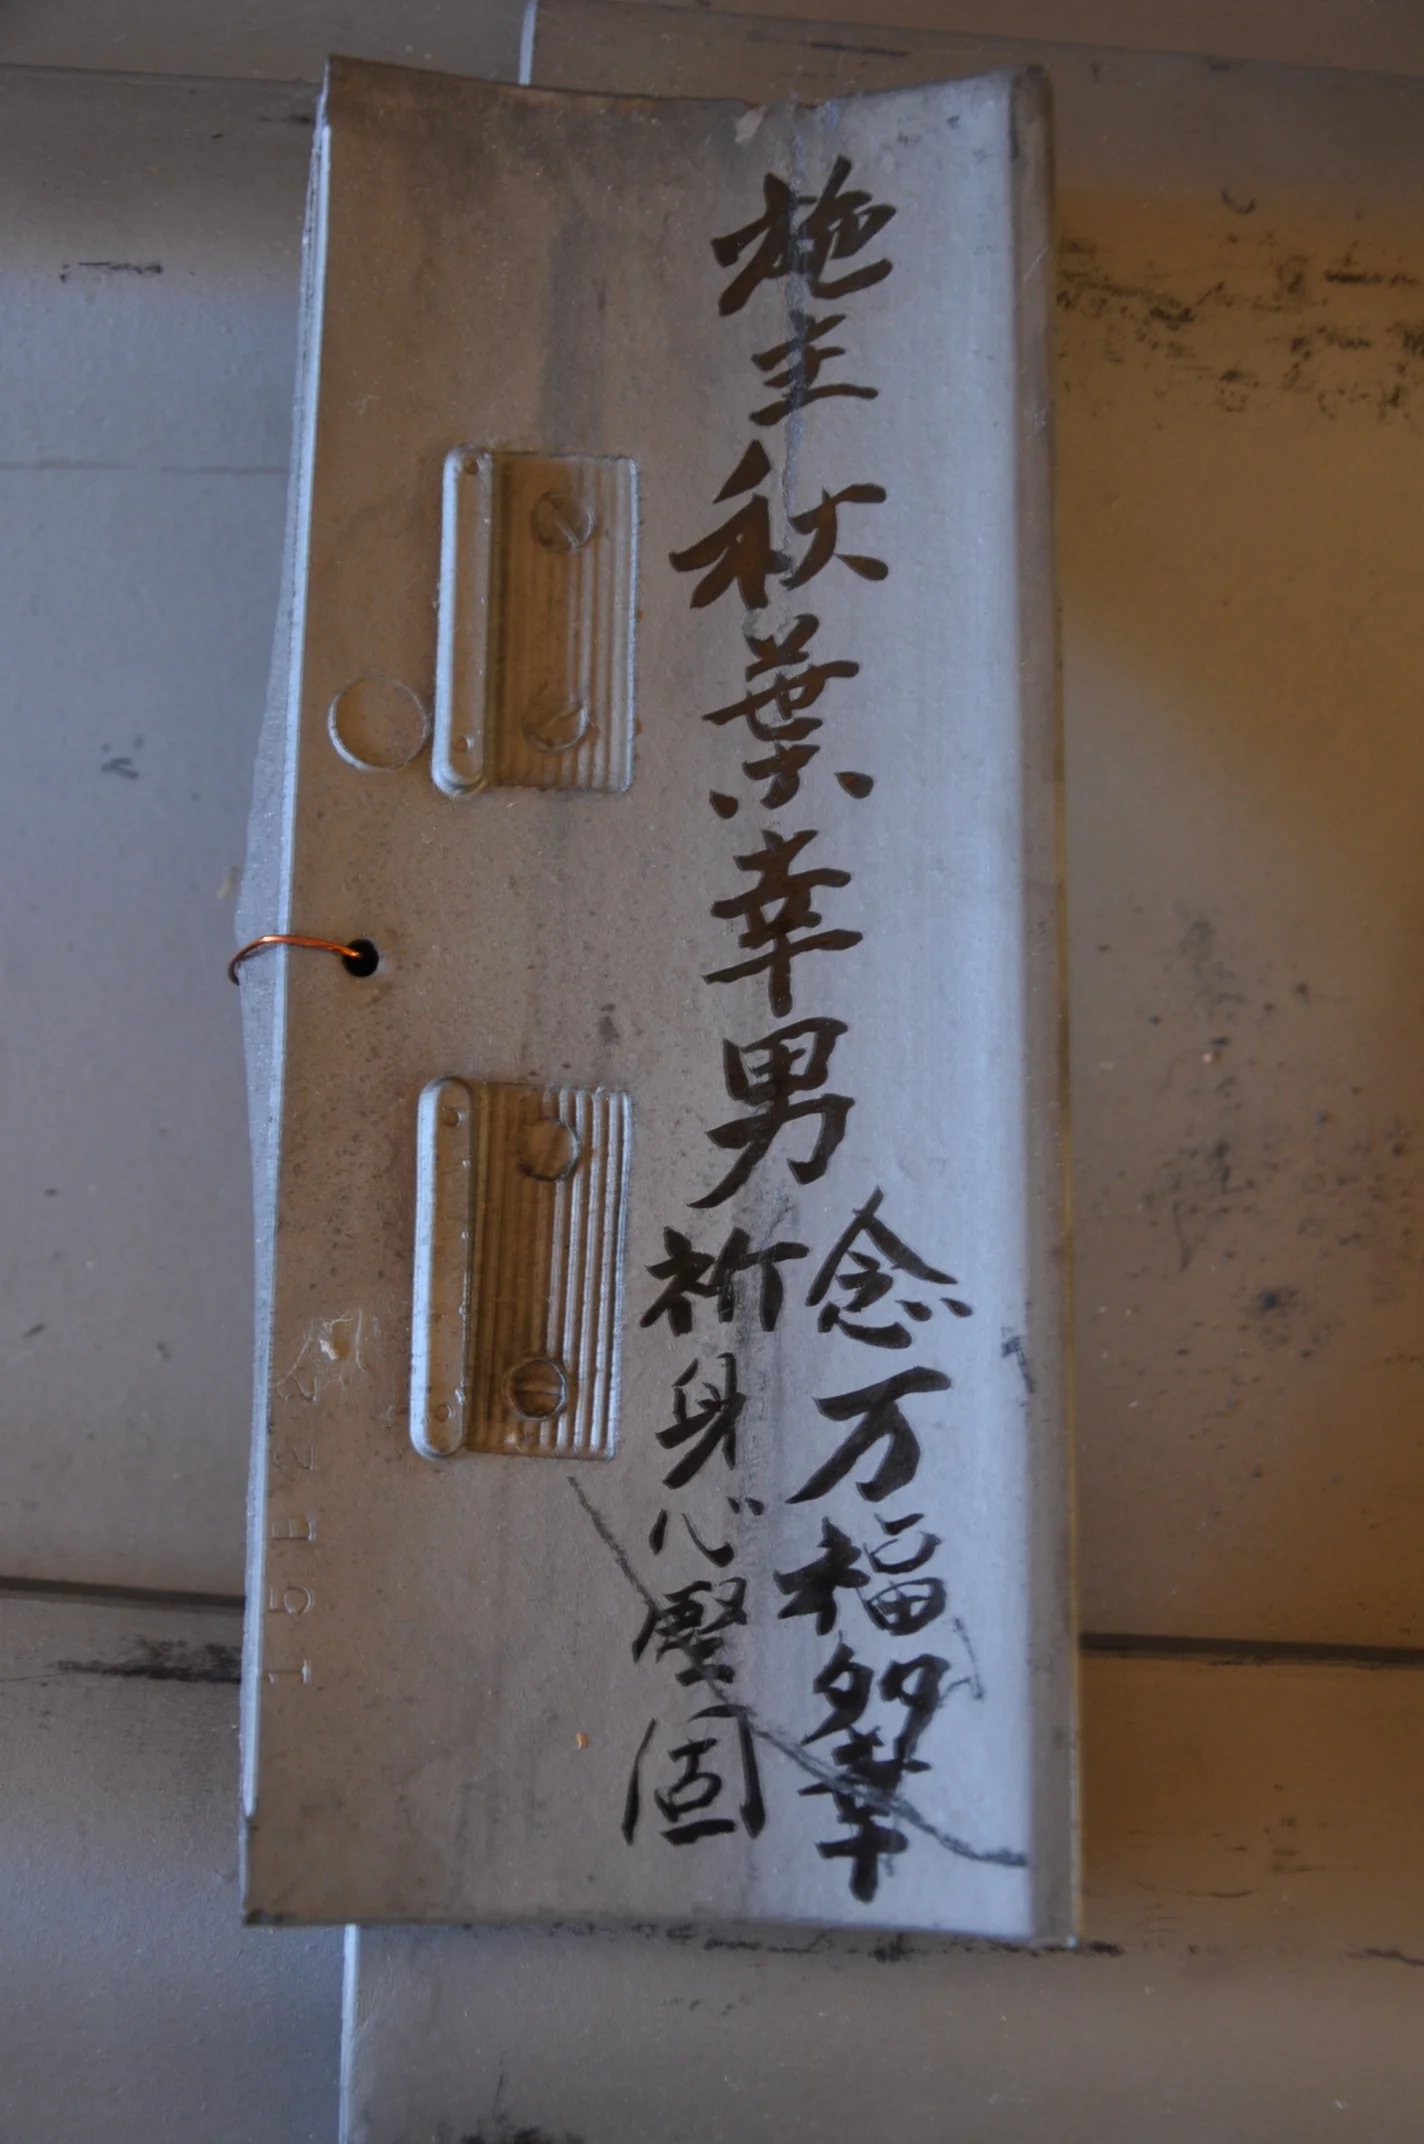 施主秋葉幸男
念万福多幸
祈身心堅固
15B22